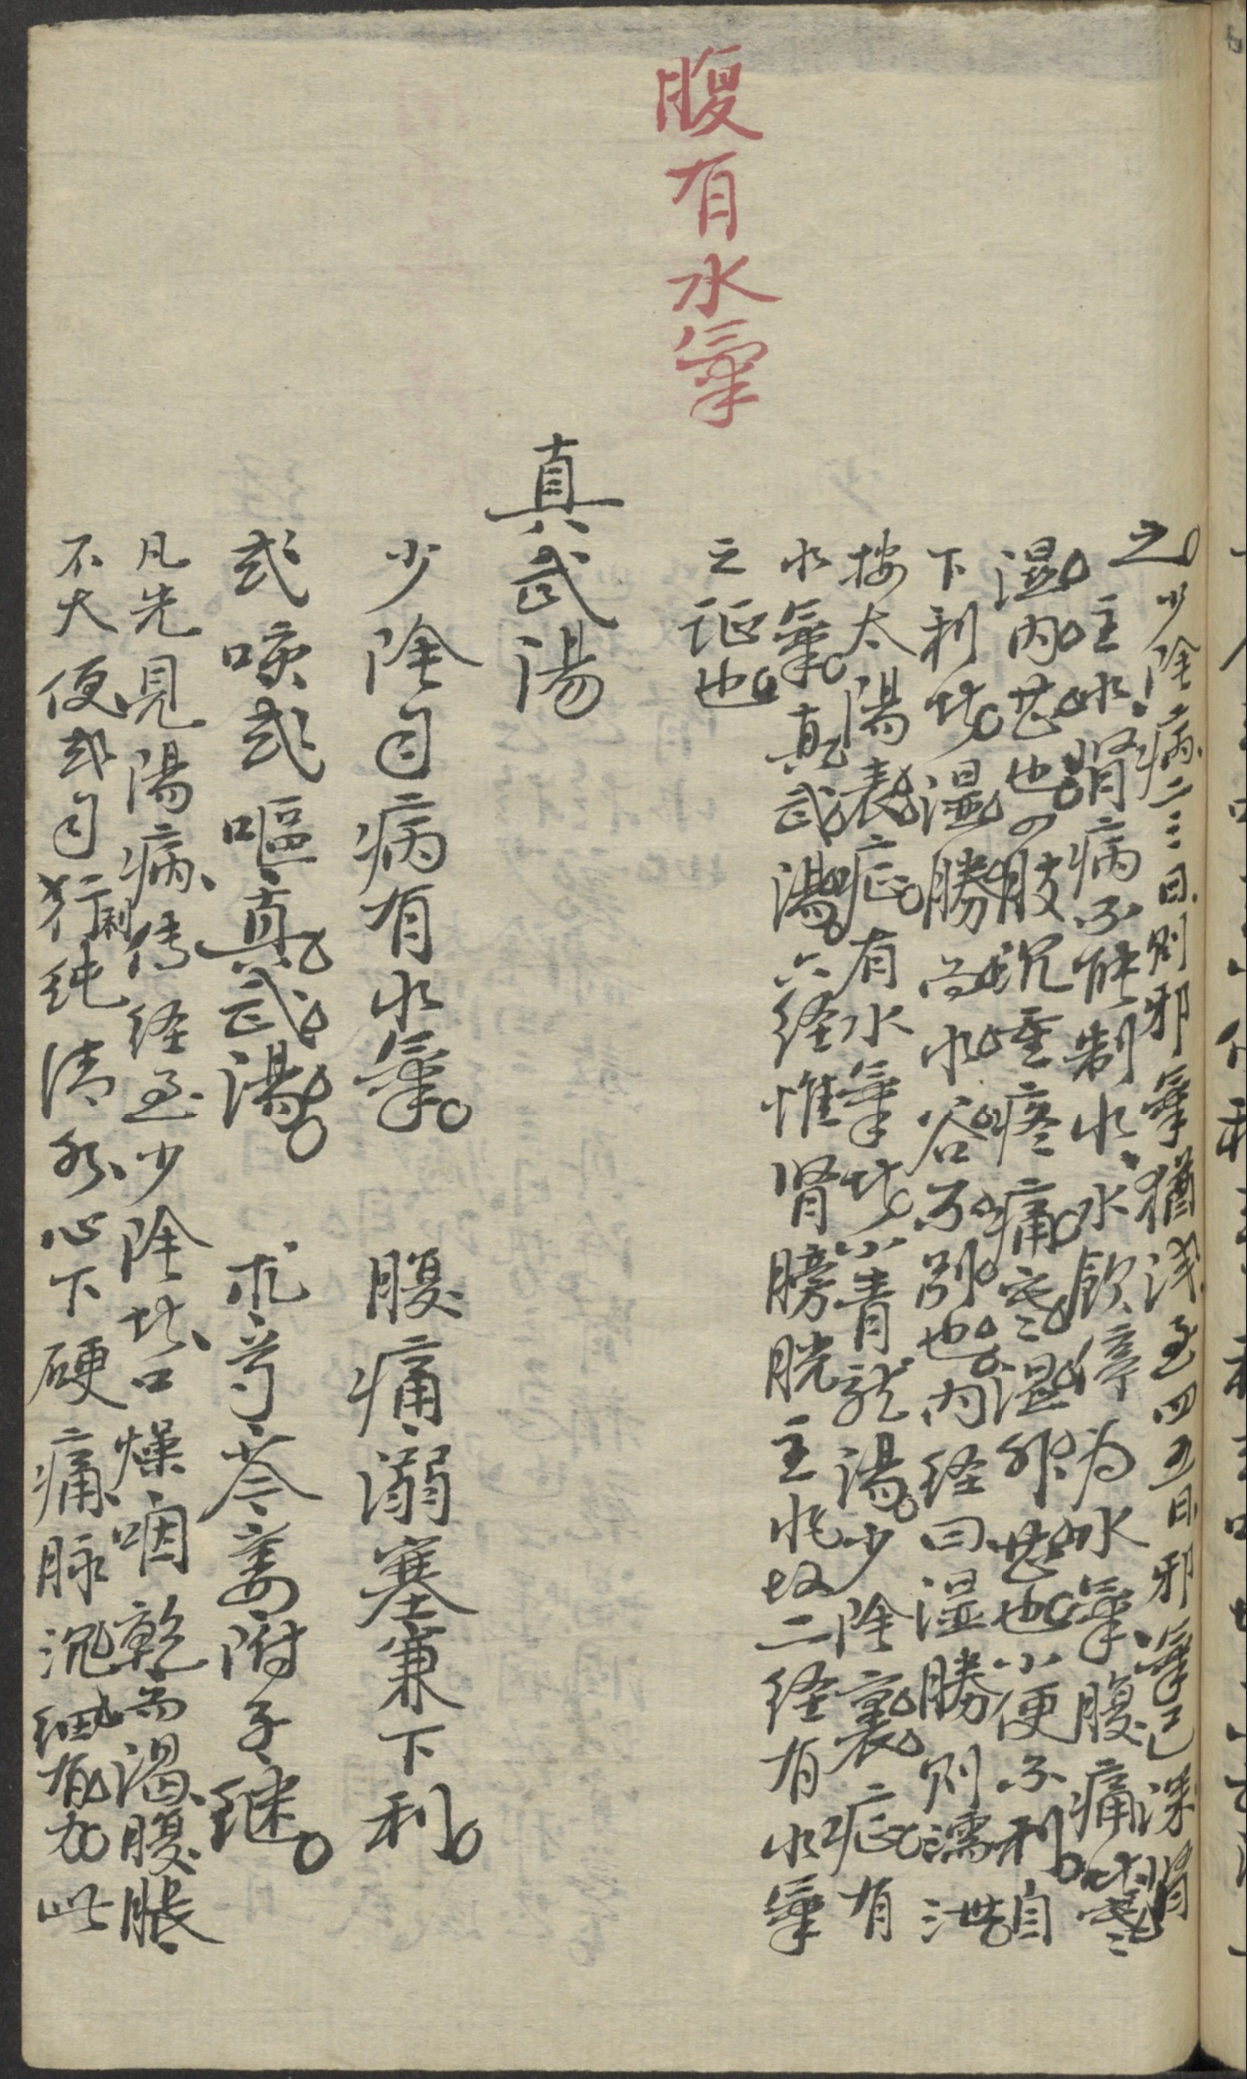 之少陰病二三日則邪氣猶浅至四五日邪氣已深腎
主水腎病不能制水水飲停為水氣腹痛者寒
湿内甚也四肢沉重疼痛寒湿外甚也小便不利自
下利者湿勝而水谷不別也内经曰湿勝則濡泄
按太陽表症有水氣者小青龙湯少陰裏症有
水氣真武湯六经惟肾膀胱主水故二经有水氣
之証也
腹有水氣
真武湯
少陰自病有水氣 腹痛溺塞兼下利
或咳或嘔真武湯 朮芍苓姜附子继
凡先見陽病传经至少陰者口燥咽乾而渴腹脹
不大便或自行利纯清水心下硬痛脉沉细有力此